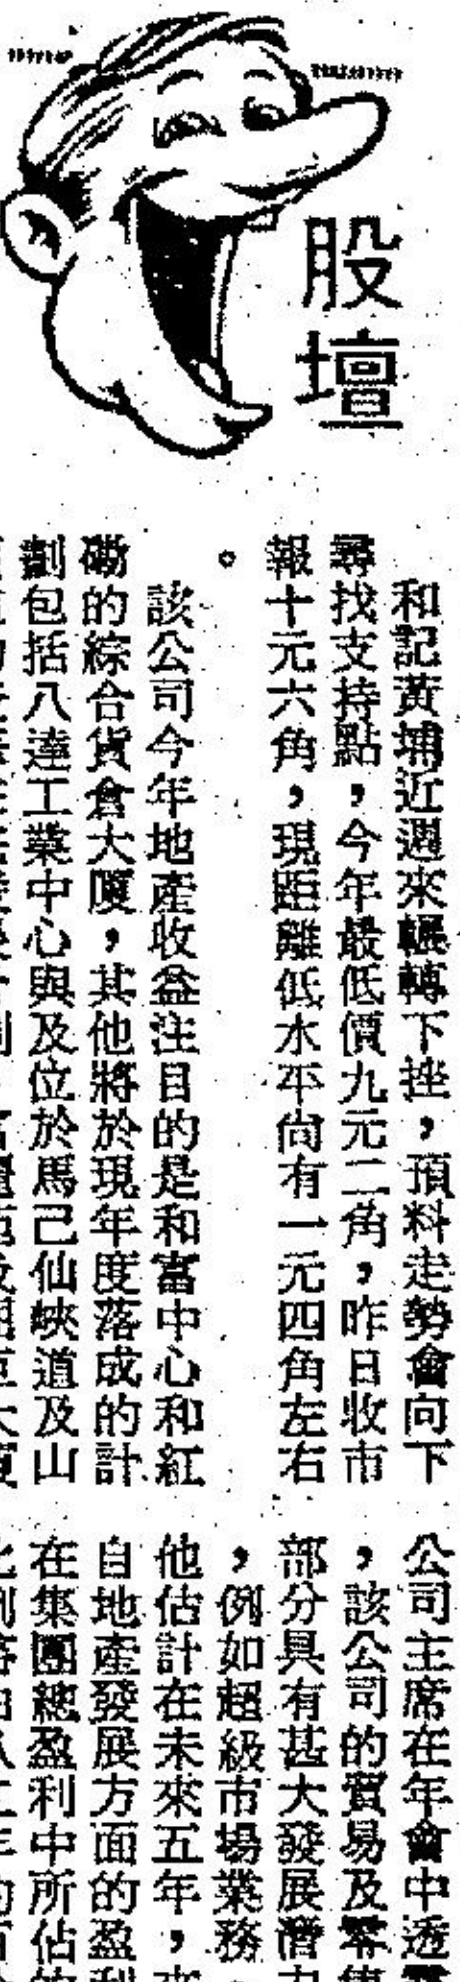 股壇
和記黃埔近週來輾轉下挫，預料走勢會向下
尋找支持點，今年最低價九元二角，昨日收市
報十元六角，現距離低水平尙有一元四角左右
。
該公司今年地產收益注目的是和富中心和紅
磡的綜合貨倉大厦，其他將於現年度落成的計
劃包括八達工業中心與及位於馬己仙峽道及山
公司主席在年會中透
，該公司的貿易及零售
部分具有甚大發展潛
，例如超級市場業務，
他估計在未來五年，來
自地產發展方面的盈利
在集團總盈利中所佔的